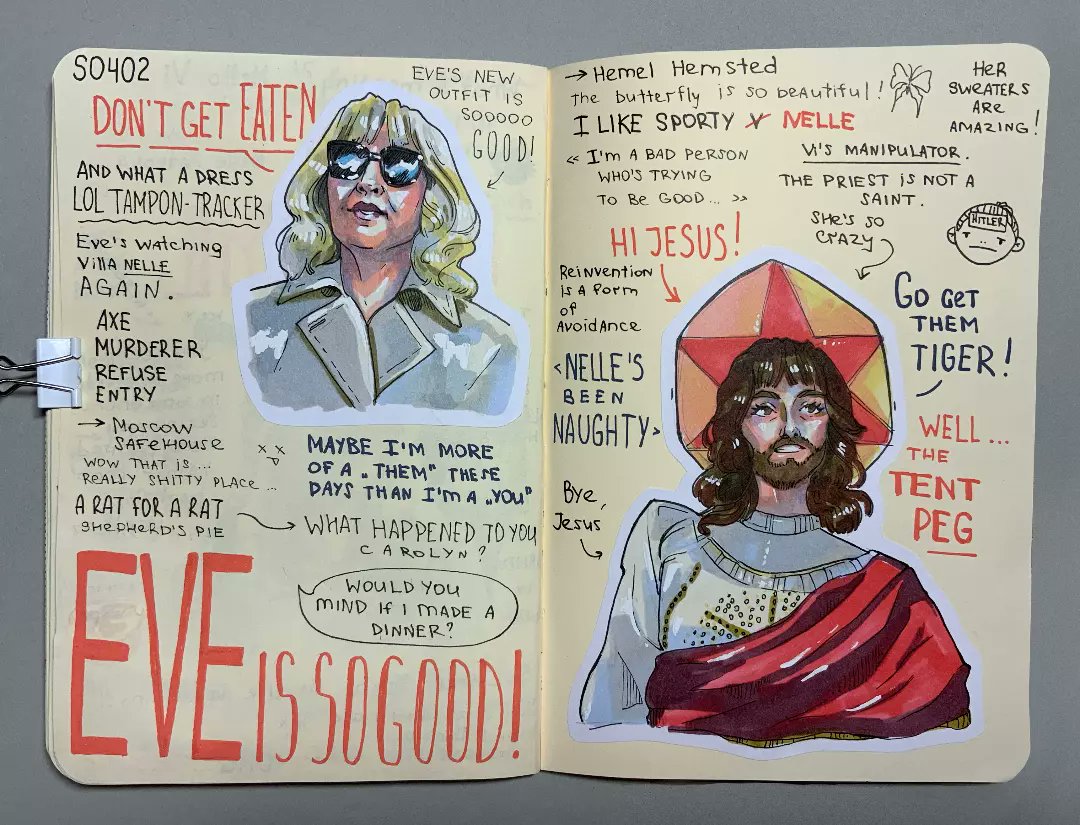 S0402
DON'T GET EATEN
AND WHAT A DRESS
LOL TAMPON-TRACKER
Eve's watching
Villa NELLE
AGAIN.
AXE
MURDERER
REFUSE
ENTRY
→ Moscow
SAFEHOUSE
WOW THAT IS...
REALLY SHITTY PLACE...
A RAT FOR A RAT
SHEPHERD'S PIE
EVE'S NEW
OUTFIT IS
SOOOOO
GOOD!
MAYBE I'M MORE
OF A „THEM" THESE
DAYS THAN I'M A „YOU"
WHAT HAPPENED TO YOU
CAROLYN?
WOULD YOU
MIND IF I MADE A
DINNER?
EVE IS SO GOOD!
→ Hemel Hemsted
The butterfly is so beautiful!
I LIKE SPORTY V NELLE
HER
SWEATERS
ARE
AMAZING!
« I'M A BAD PERSON
WHO'S TRYING
TO BE GOOD... »
VI'S MANIPULATOR.
THE PRIEST IS NOT A
SAINT.
SHE'S SO
CRAZY
HITLER
HI JESUS!
Reinvention
is a form
of
Avoidance
GO GET
THEM
TIGER!
<NELLE'S
BEEN
NAUGHTY>
WELL...
THE
TENT
PEG
Bye,
Jesus